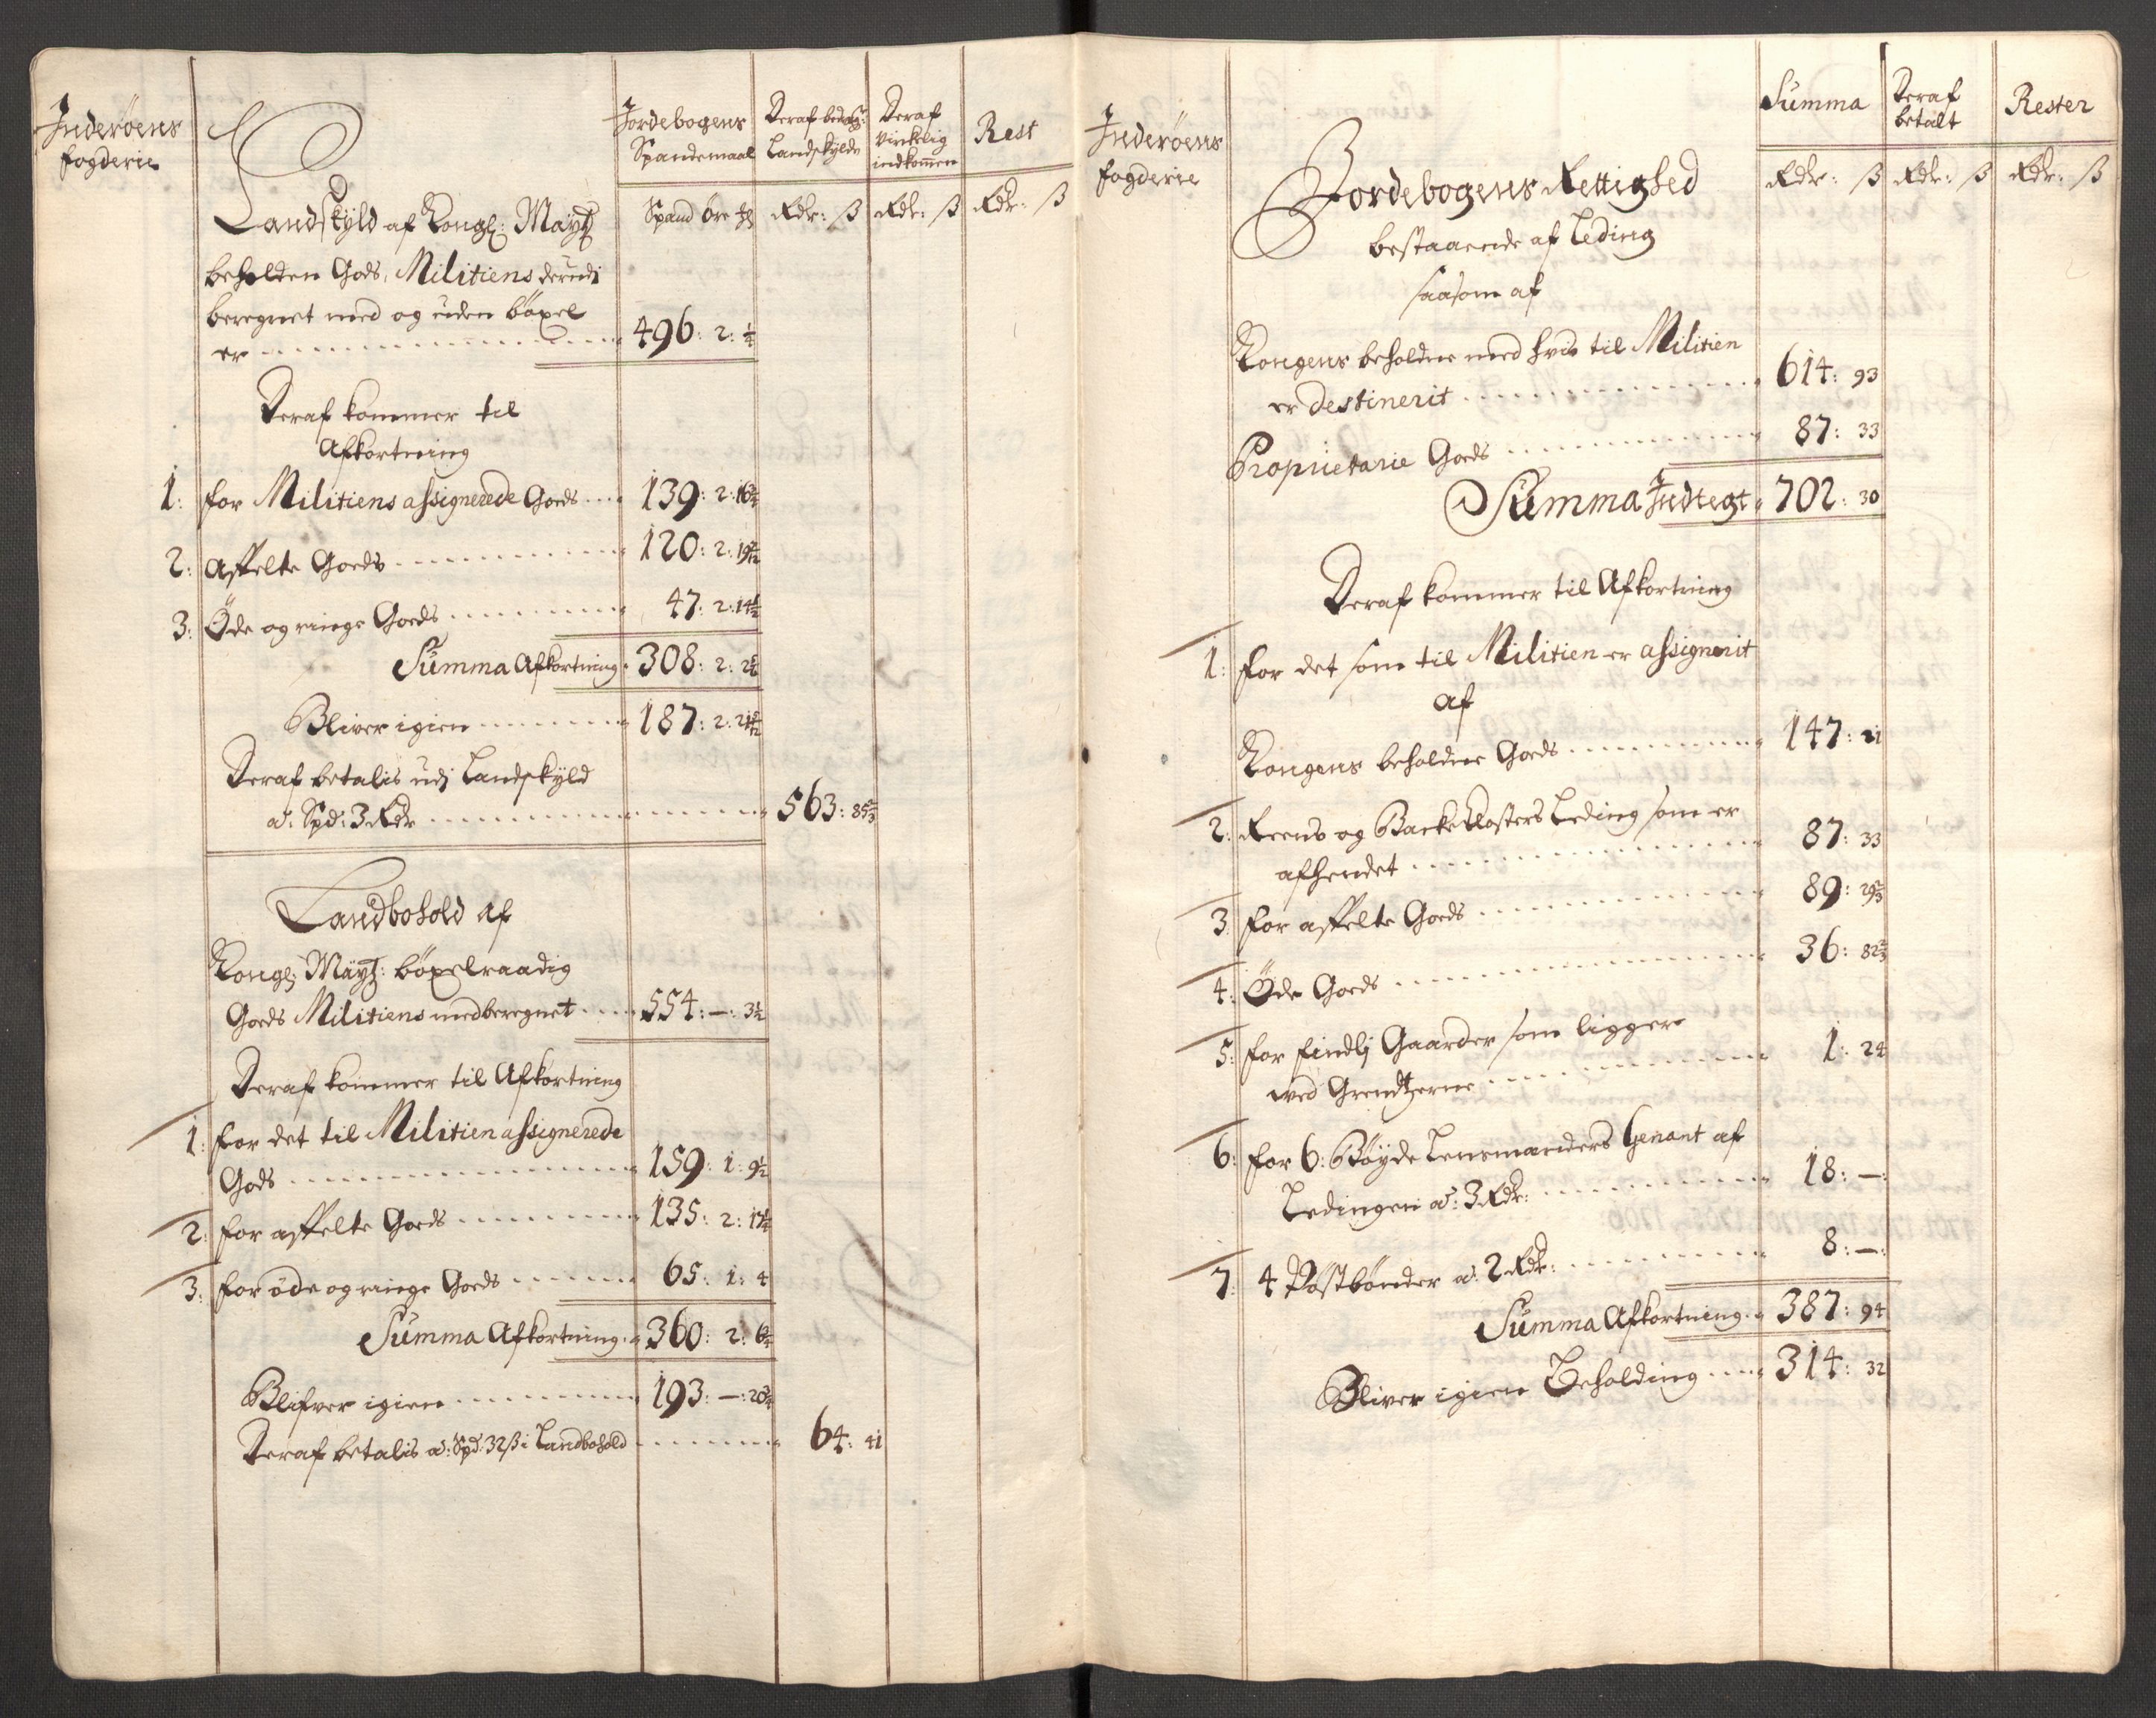 Inderøens
fogderie
Jordebogens
Spandemaal
Deraf bedrag:
Landskyld
Deraf
virkelig
indkommen
Rest
Spand øre
Rdr: ß
Rdr: ß
Rdr: ß
Landskyld af Kongl: Mayts
beholden Gods, Militiens derudi
beregnet med og uden böxel
er 496: 2: 1/4
Deraf kommer til
Afkortning
1: for Militiens assignerede Goeds 139: 2: 16
2: Affelte Goeds 120: 2: 19
3: Øde og ringe Goeds 47: 2: 14
Summa Afkortning 308: 2: 2
Bliver igien 187: 2: 21
Deraf betalis udj Landskyld
a: Spd: 3 Rdr 563: 85
Landbohold af
Kongl: Mayts: böxelraadig
Goeds Militiens medberegnet 554: —: 3½
Deraf kommer til Afkortning
1: for det til Militien assignerede
Gods 159: 1: 9½
2: for affelte Goeds 135: 2: 17
3: for øde og ringe Goeds 65: 1: 4
Summa Afkortning 360: 2: 6
Blifver igien 193: —: 20
Deraf betalis a: Spd: 32 ß i Landbohold 64: 41
Inderøens
fogderie
Summa
Deraf
betalt
Rester
Rdr: ß
Rdr: ß
Rdr: ß
Jordebogens Rettighed
bestaaende af Leding
saasom af
Kongens beholdne med hvis til Militien
er destinerit 614: 93
Proprietarie Goeds 87: 33
Summa Indtegt 702: 30
Deraf kommer til Afkortning
1: for det som til Militien er assignerit
af
Kongens beholdne Goeds 147: 21
2: Reens og Backe Closters Leding som er
afhendet 87: 33
3 for affelte Goeds 89: 29⅔
4: Øde Goeds 36: 82⅔
5: for findlj Gaarder som ligger
ved Grendtzerne 1: 24
6: for 6: Böyde Lensmanders Genant af
Ledingen a: 3 Rdr: 18: —:
7: 4 Postbønder a: 2 Rdr: 8: —:
Summa Afkortning 387: 94
Bliver igien Beholding 314: 32